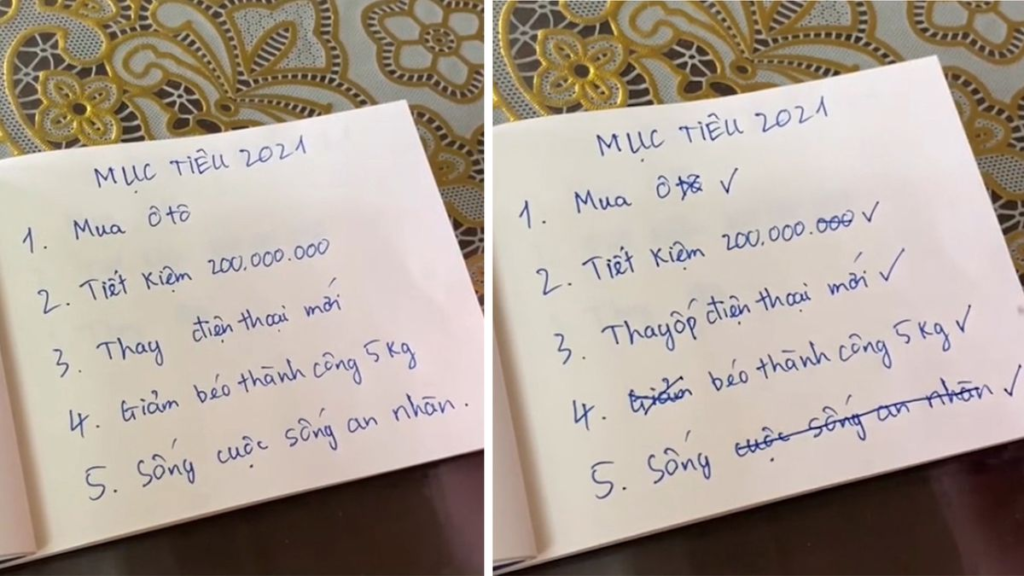 MỤC TIÊU 2021
1. Mua ô tô
2. Tiết Kiệm 200.000.000
3. Thay điện thoại mới
4. Giảm béo thành công 5 Kg
5. Sống cuộc sống an nhàn.
MỤC TIÊU 2021
1. Mua ô tô ✓
2. Tiết Kiệm 200.000.000 ✓
3. Thay ốp điện thoại mới ✓
4. Giảm béo thành công 5 Kg ✓
5. Sống cuộc sống an nhàn ✓